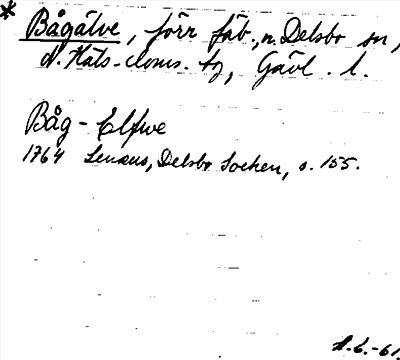 * Bågälve, förr fäb., n. Delsbo sn,
N. Häls-doms. tg, Gävl. l.
Båg-Elfwe
1764 Lenæus, Delsbo Sochen, s. 155.